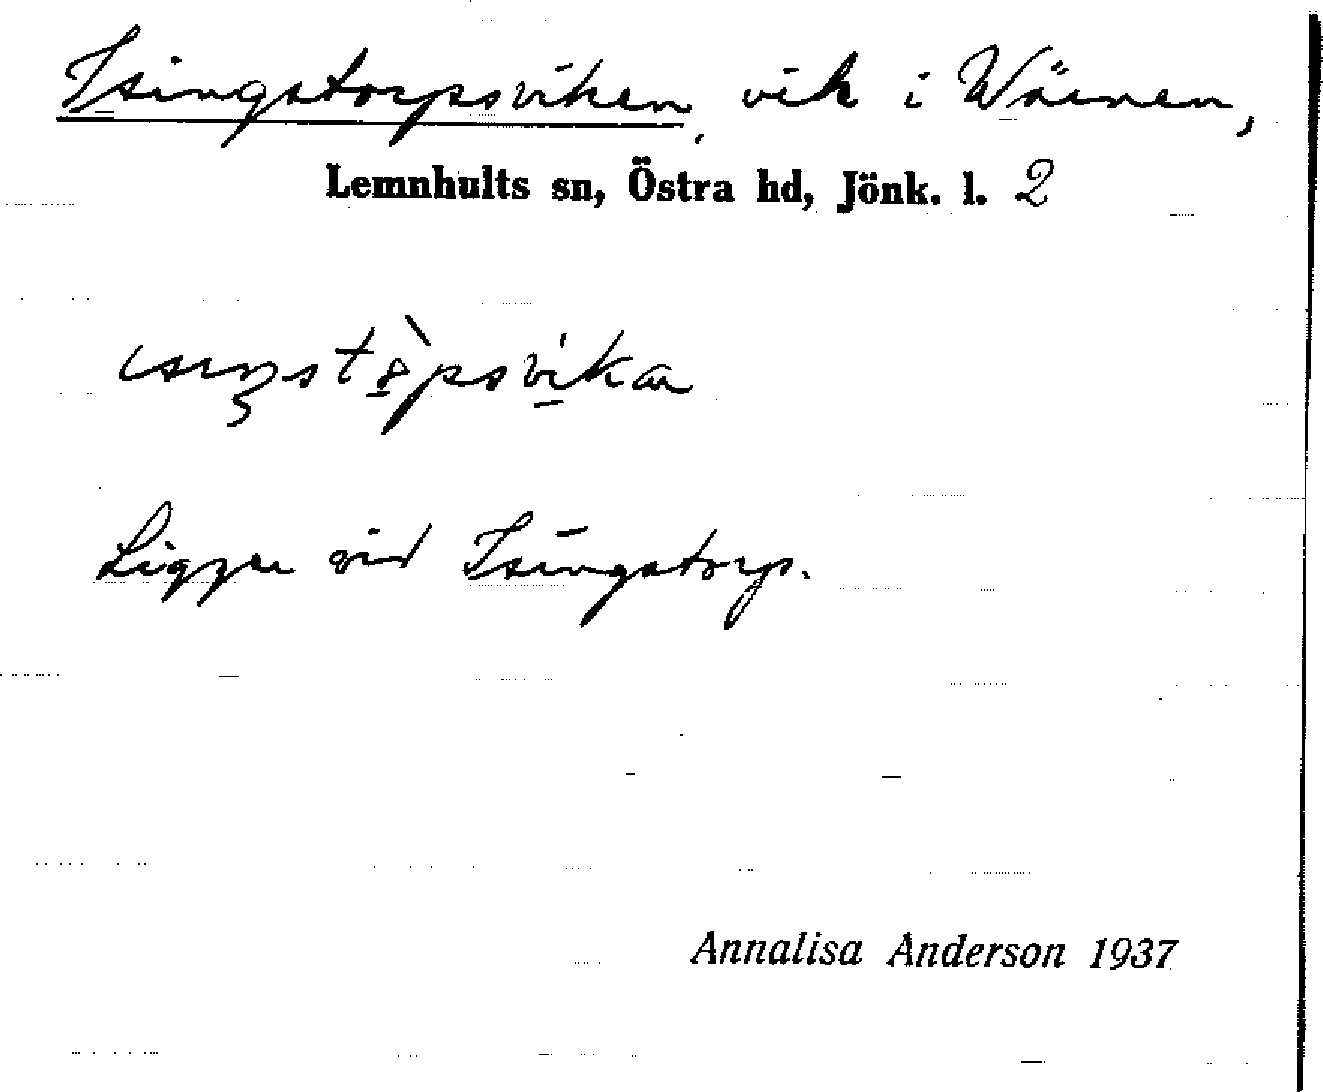 Isingstorpsviken, vik i Wäinen,
Lemnhults sn, Östra hd, Jönk. l. 2
Ligger vid Isingstorp.
Annalisa Anderson 1937